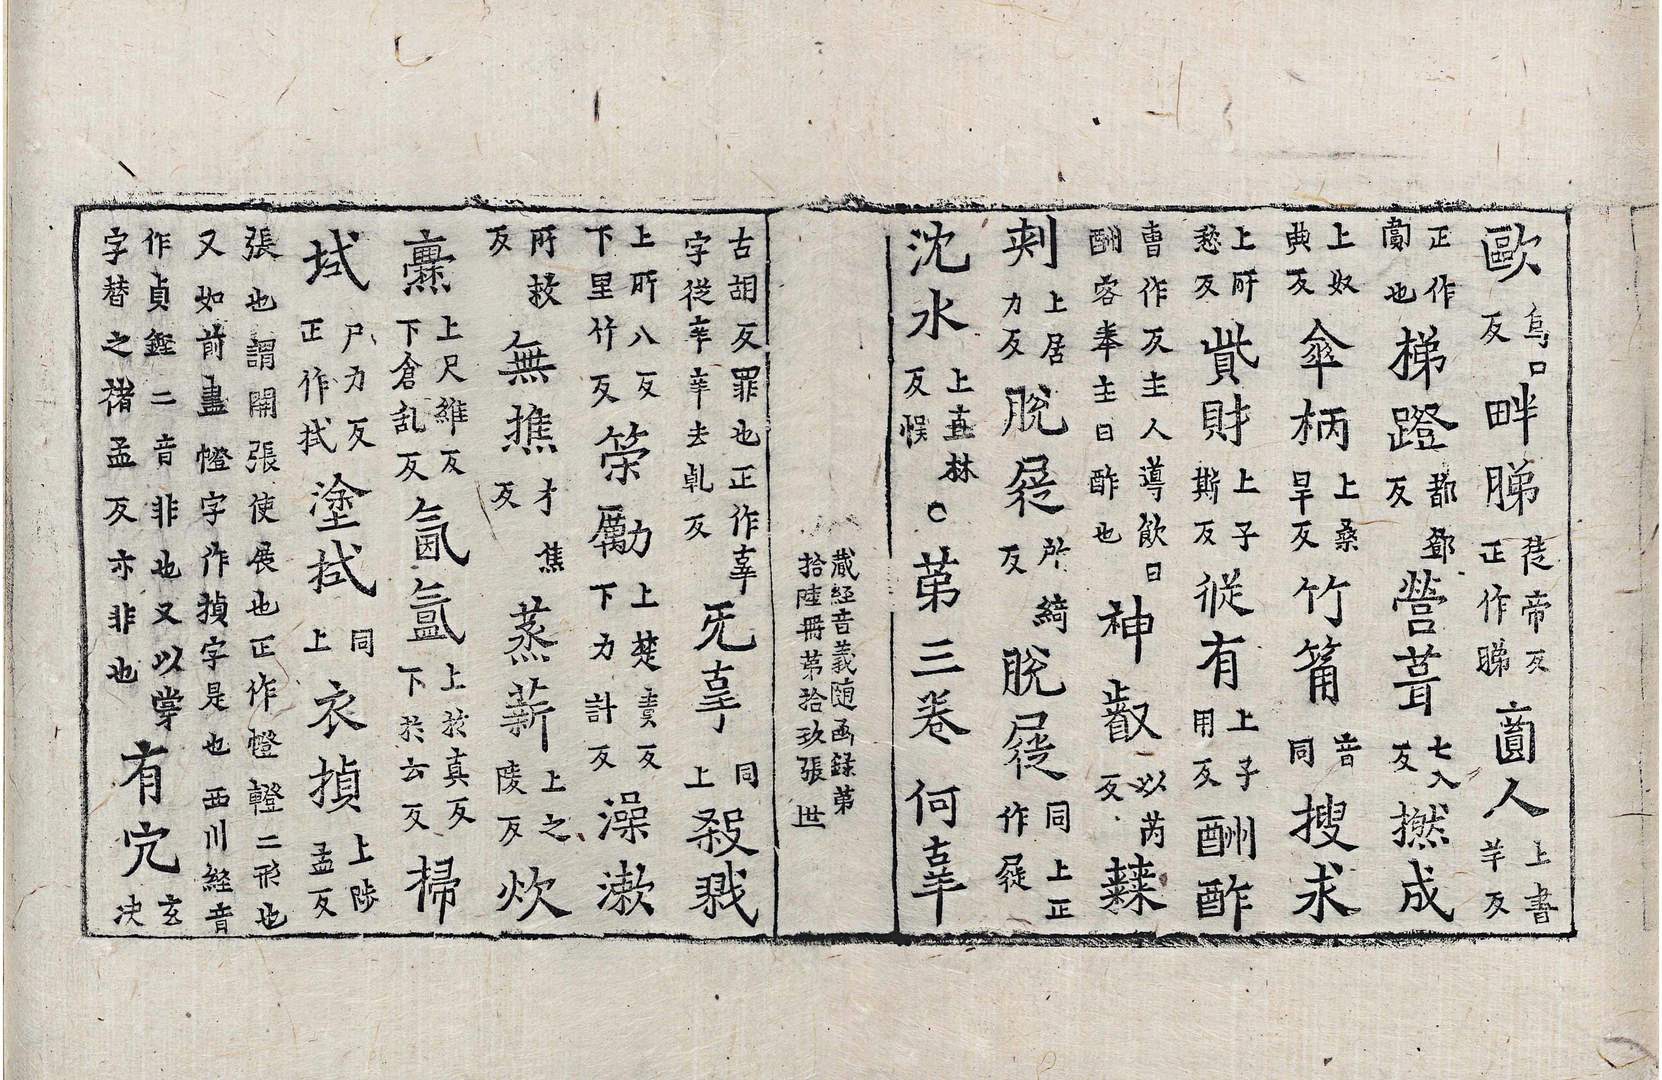 歐烏口反畔睇徒帝反正作睇啇人上書羊反
正作啇也梯蹬都鄧反營葺七入反撚成
上奴典反傘柄上桑旱反竹筩音同搜求
上所愁反貲財上子斯反從有上子用反酬酢
曺作反主人導飲曰酬客奉主曰酢也神叡以芮反蕀
刾上居力反脫屣所綺反脫屣同上正作屣
沈水上直林反悮○第三卷何辜
藏經音義随函録第
拾陸冊第拾玖張 世
古胡反罪也正作辜字從辛辛去乹反无辜同上殺戮
上所八反下里竹反策勵上楚責反下力計反澡漱
所救反無撨才焦反蒸薪上之陵反炊
爨上尺維反下倉乱反氤氳上於真反下於云反掃
拭尸力反正作拭塗拭同上衣揁上陟孟反
張也謂開張使展也正作憕二形也
又如前畫憕字作揁字是也西川經音
作貞鏗二音非也又以掌
字替之禇孟反亦非也有穴玄决